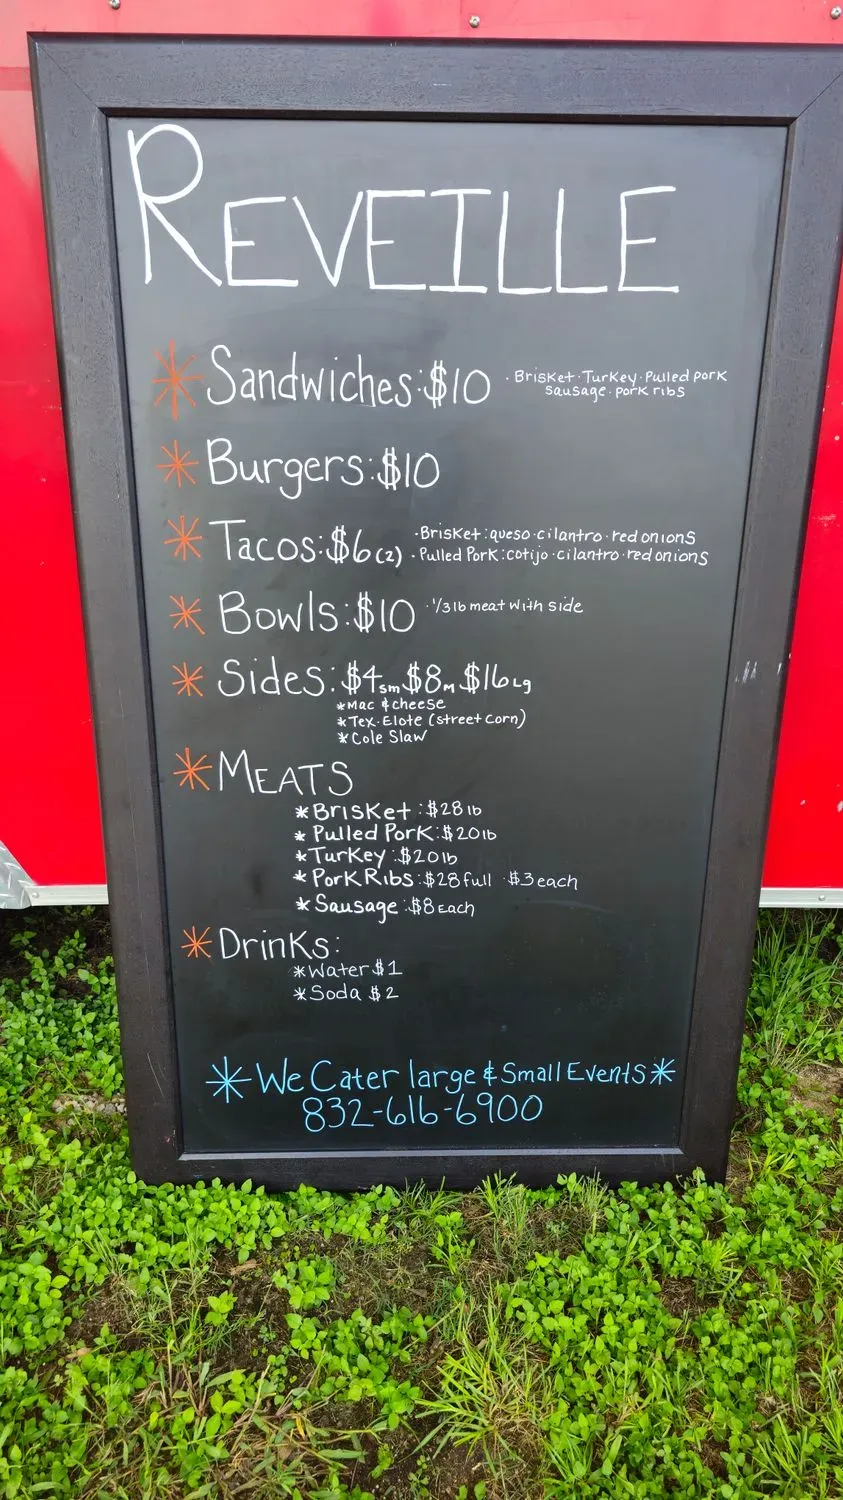 REVEILLE
* Sandwiches: $10 · Brisket · Turkey · Pulled pork
sausage · pork ribs
* Burgers: $10
* Tacos: $6 (2) · Brisket: queso · cilantro · red onions
· Pulled Pork: cotijo · cilantro · red onions
* Bowls: $10 · 1/3 lb meat with side
* Sides: $4 sm $8 M $16 Lg
* Mac & cheese
* Tex-Elote (street corn)
* Cole Slaw
* MEATS
* Brisket: $28 lb
* Pulled Pork: $20 lb
* Turkey: $20 lb
* Pork Ribs: $28 full · $3 each
* Sausage: $8 Each
* Drinks:
* Water $1
* Soda $2
* We Cater large & Small Events *
832-616-6900